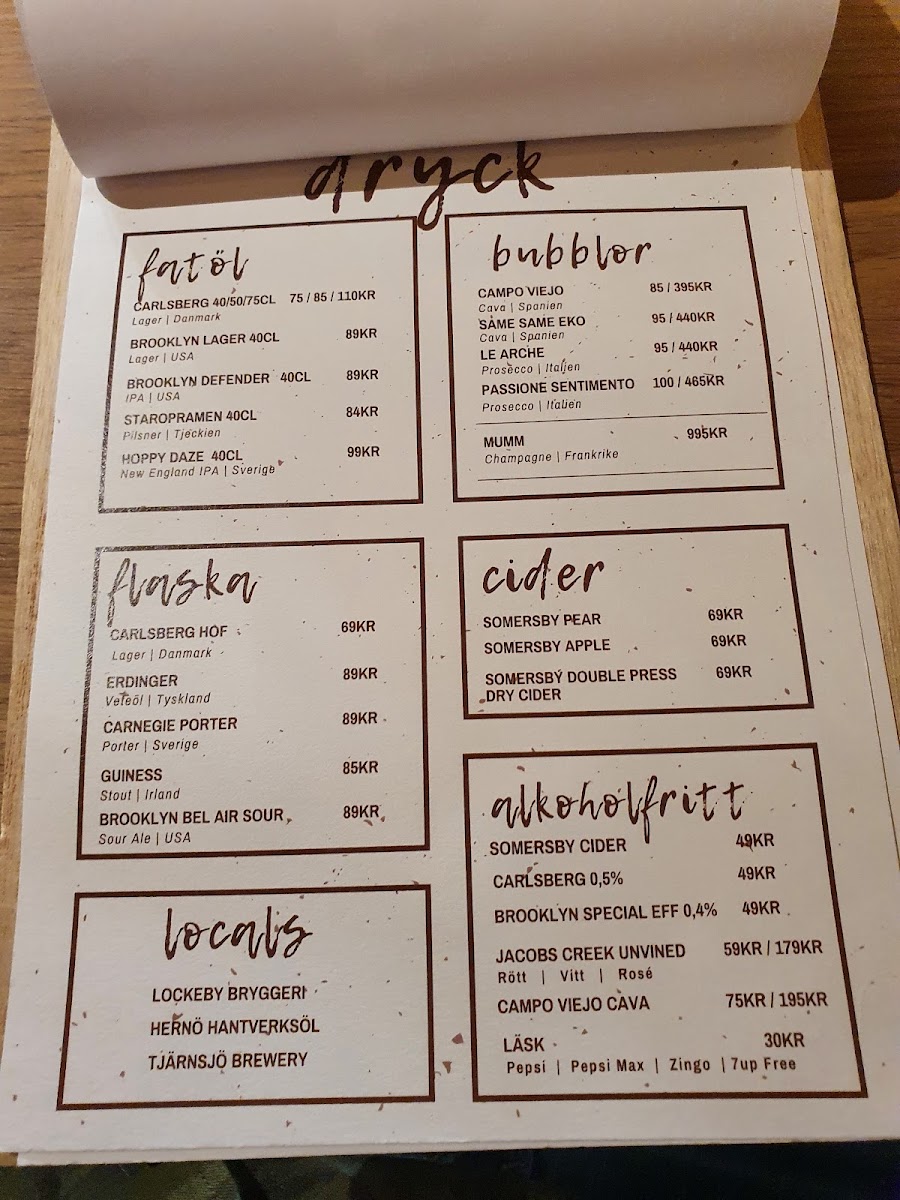 dryck
fatöl
CARLSBERG 40/50/75CL 75 / 85 / 110KR
Lager | Danmark
BROOKLYN LAGER 40CL 89KR
Lager | USA
BROOKLYN DEFENDER 40CL 89KR
IPA | USA
STAROPRAMEN 40CL 84KR
Pilsner | Tjeckien
HOPPY DAZE 40CL 99KR
New England IPA | Sverige
flaska
CARLSBERG HOF 69KR
Lager | Danmark
ERDINGER 89KR
Veteöl | Tyskland
CARNEGIE PORTER 89KR
Porter | Sverige
GUINESS 85KR
Stout | Irland
BROOKLYN BEL AIR SOUR 89KR
Sour Ale | USA
locals
LOCKEBY BRYGGERI
HERNÖ HANTVERKSÖL
TJÄRNSJÖ BREWERY
bubblor
CAMPO VIEJO 85 / 395KR
Cava | Spanien
SAME SAME EKO 95 / 440KR
Cava | Spanien
LE ARCHE 95 / 440KR
Prosecco | Italien
PASSIONE SENTIMENTO 100 / 465KR
Prosecco | Italien
MUMM 995KR
Champagne | Frankrike
cider
SOMERSBY PEAR 69KR
SOMERSBY APPLE 69KR
SOMERSBY DOUBLE PRESS 69KR
DRY CIDER
alkoholfritt
SOMERSBY CIDER 49KR
CARLSBERG 0,5% 49KR
BROOKLYN SPECIAL EFF 0,4% 49KR
JACOBS CREEK UNVINED 59KR / 179KR
Rött | Vitt | Rosé
CAMPO VIEJO CAVA 75KR / 195KR
LÄSK 30KR
Pepsi | Pepsi Max | Zingo | 7up Free